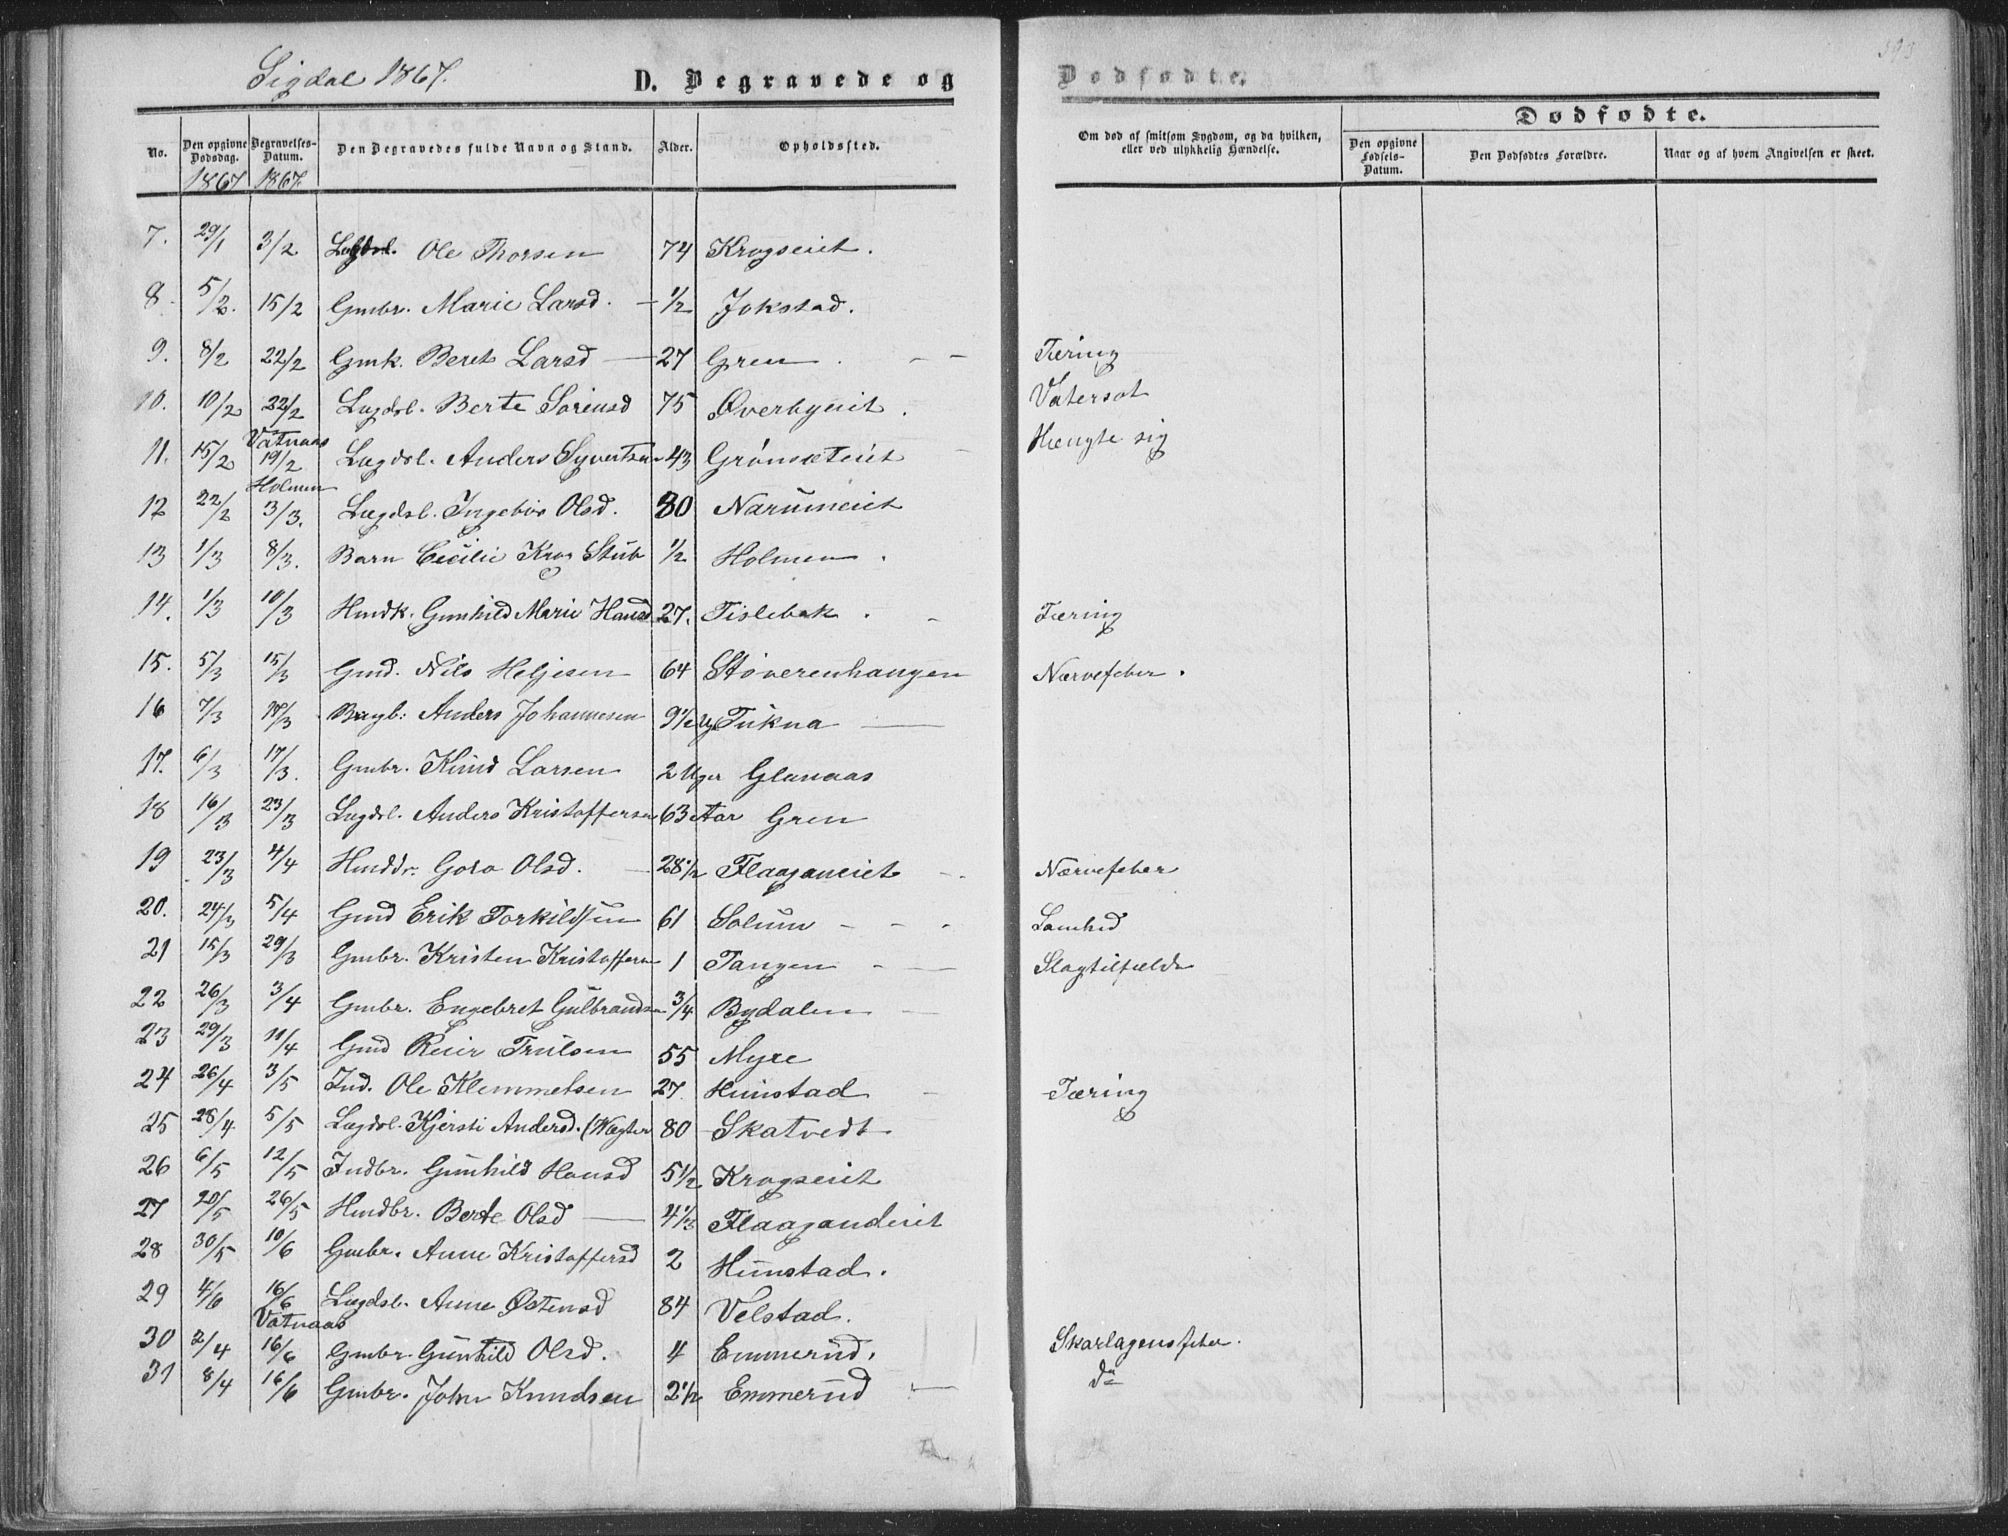 Sigdal 1867.
D. Begravede og Dødfødte.
393
No.
Den opgivne Dødsdag.
Begravelses-Datum.
Den Begravedes fulde Navn og Stand.
Alder.
Opholdssted.
Om død af smitsom Sygdom, og da hvilken, eller ved ulykkelig Hændelse.
Dødfødte.
Den opgivne Fødsels-Datum.
Den Dødfødtes Forældre.
Naar og af hvem Angivelsen er skeet.
1867 1867.
7. 29/1 3/2 Lægdsl. Ole Thorsen 74 Krogseiet.
8. 5/2. 15/2 Gmbr. Marie Larsd. — 1/2 Jokstad.
9. 8/2 22/2 Gmk. Beret Larsd — 27 Gren . — — Tæring
10. 10/2 22/2 Lægdsl. Berte Sørensd 75 Øverbyeiet. Vatersot
11. 15/2 Vatnaas 19/2 Lægdsl. Anders Syvertsen 43 Grønseteiet — Hængte sig
12 22/2 Holmen 3/3. Lægdsl. Ingebor Olsd. 80 Narumeiet
13 1/3 8/3. Barn Cecilie Krog Stub 1/2 Holmen .
14. 1/3 10/3 Hmdk. Gunhild Marie Hansd 27. Tislebak . — Tæring
15. 5/3 15/3 Gmd. Nils Heljesen 64 Støverenhaugen Nærvefeber .
16 7/3 17/3 Anders Johannesen 9 1/2 Ug Tukna —
17. 6/3 17/3. Gmbr. Knud Larsen 2 Uger Glanaas
18 16/3 23/3 Lægdsl. Anders Kristoffersen 63 Aar Gren
19 23/3 4/4 Hmddr. Goro Olsd. — 28 1/2 Flaaganeiet — Nærvefeber
20. 24/3 5/4 Gmd Erik Torkildssen 61 Solum — — — Lamhed
21 15/3 29/3 Gmbr. Kristen Kristoffersen 1 Tangen — — Slagtilfælde
22 26/3 3/4 Gmbr. Engebret Gulbrandsen 3/4 Bydalen —
23 29/3 11/4 Gmd Reier Trulsen 55 Myre
24 26/4 3/5 Ind. Ole Klemmetsen 27. Hunstad — Tæring
25 28/4 5/5 Lægdsl. Kjersti Andersd. (Wegter 80 Skatvedt
26 6/5 12/5 Indbr. Gunhild Hansd 5 1/2 Krogseiet
27 20/5 26/5 Hmdbr. Berte Olsd — 4 1/3 Flaagandeiet
28 30/5 10/6 Gmbr. Anne Kristoffersd 2 Hunstad.
29 4/6 16/6 Lægdsl. Anne Østensd 84 Velstad.
30 2/4 Vatnaas 16/6 Gmbr. Gunhild Olsd. 4 Emmerud. Skarlagensfeber.
31 8/4 16/6 Gmbr. John Knudsen 2 1/2 Emmerud — do